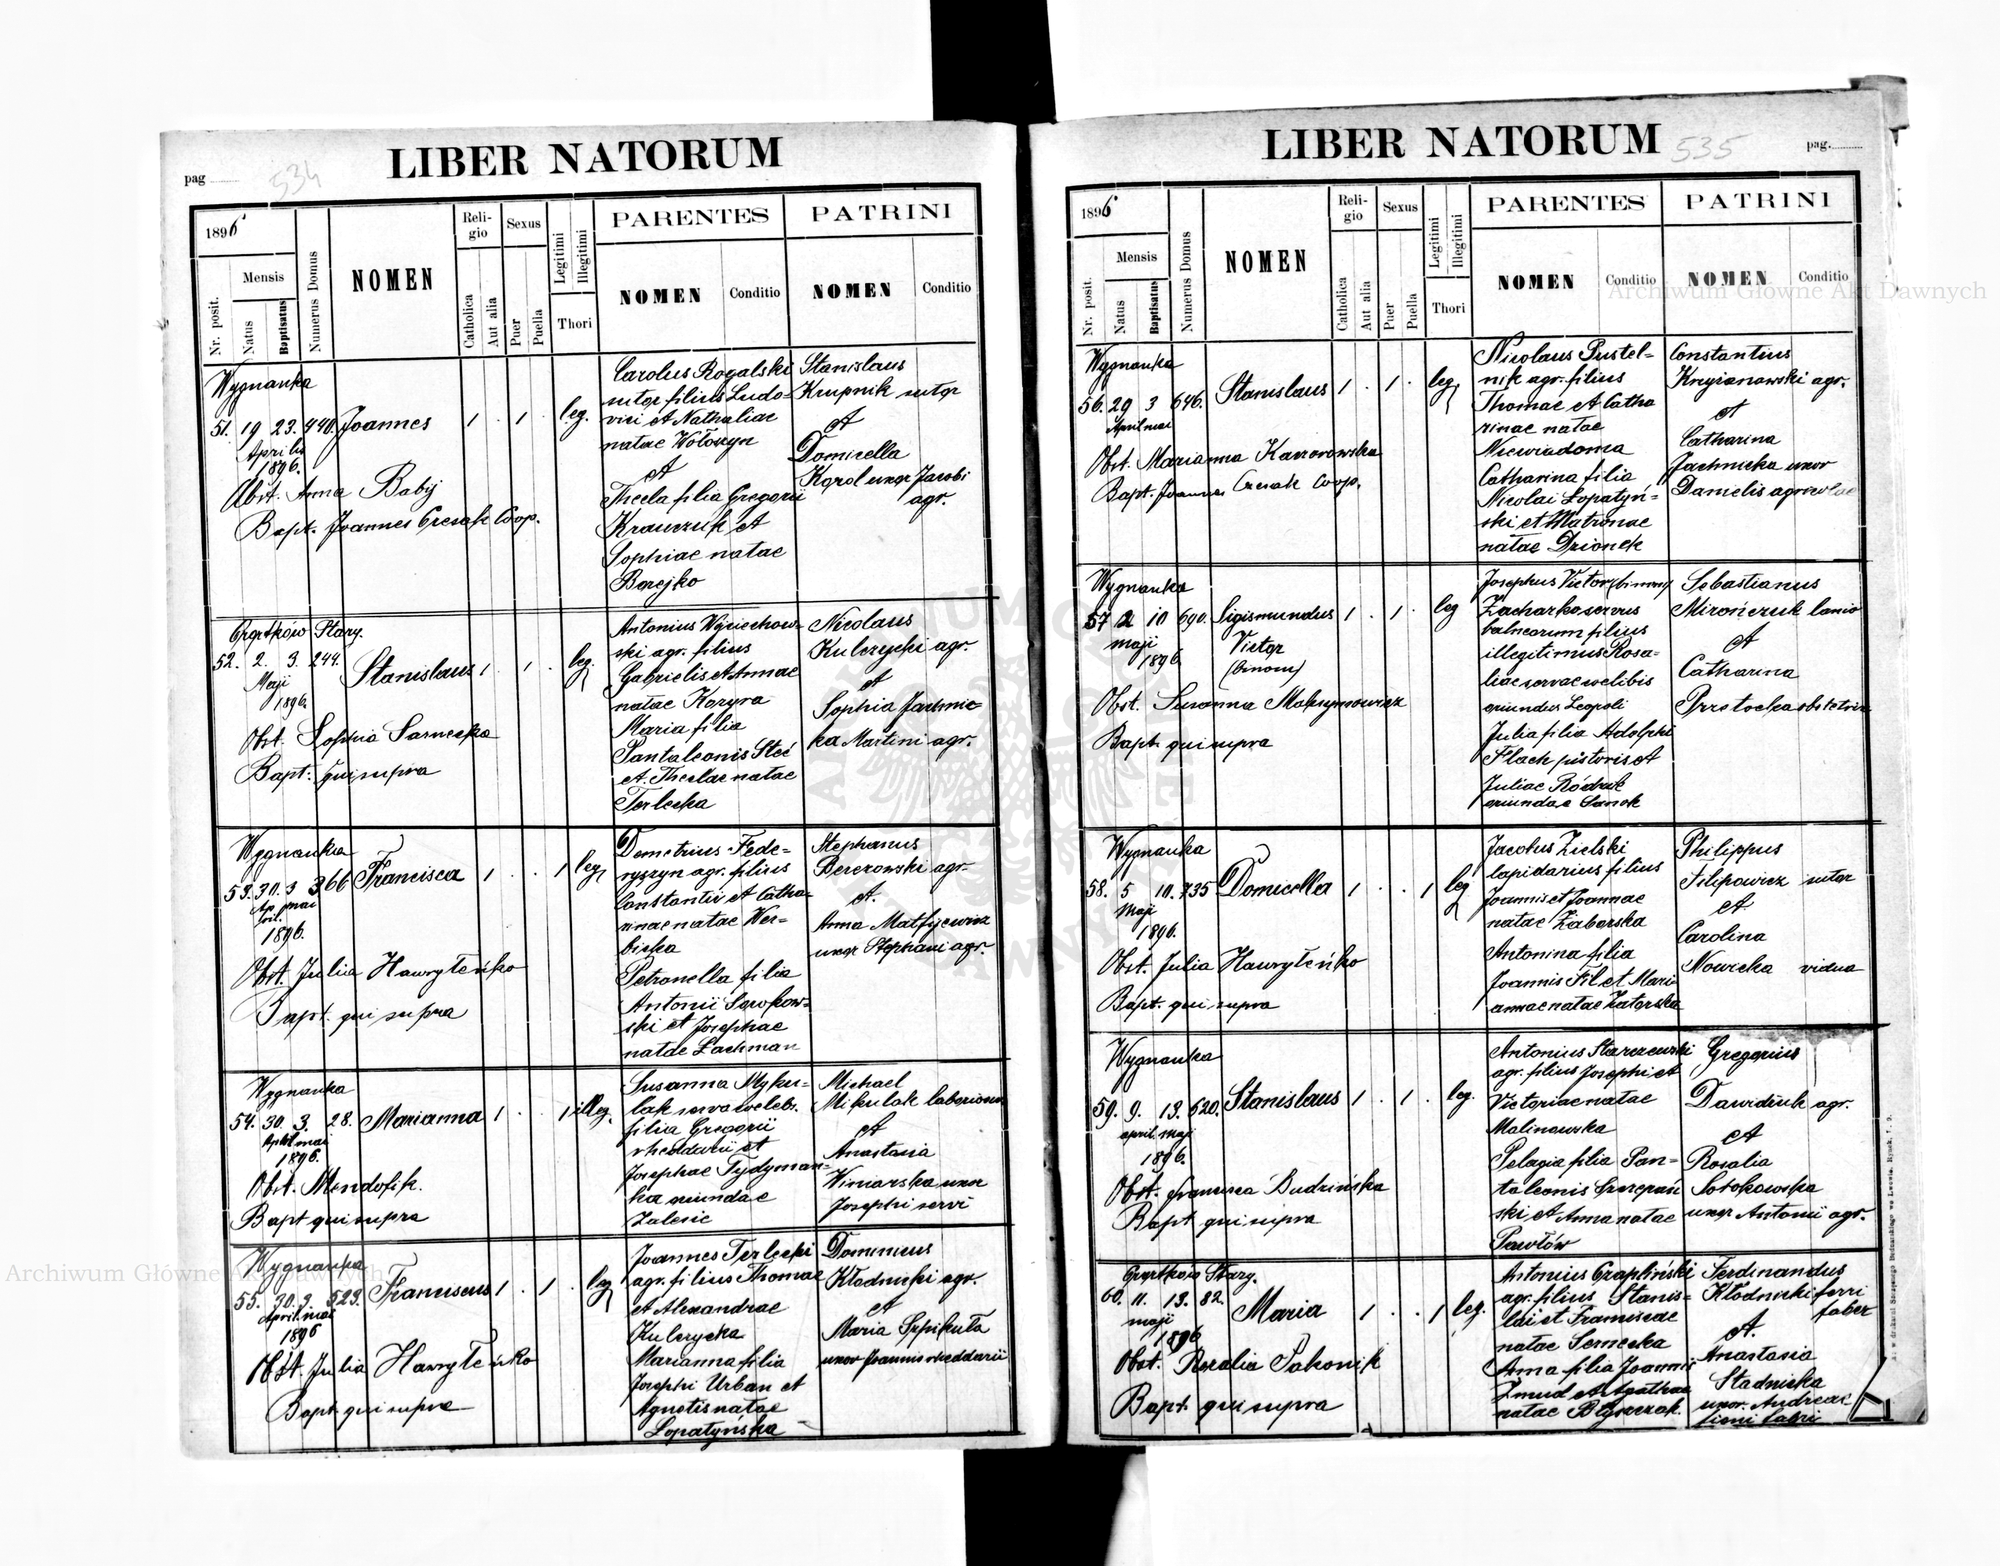 LIBER NATORUM
pag
534
1896
Mensis
Nr. posit.
Natus
Baptisatus
Numerus Domus
NOMEN
Reli-
gio
Catholica
Aut alia
Sexus
Puer
Puella
Legitimi
Illegitimi
Thori
PARENTES
NOMEN
Conditio
PATRINI
NOMEN
Conditio
Wygnanka
51. 19 23. 440. Joannes 1 . 1 . leg.
Aprilis
1896.
Obst. Anna Babij
Bapt. Joannes Czesak Coop.
Carolus Rogalski
sutor filius Ludo-
vici et Nathaliae
natae Wołoszyn
et
Thecla filia Gregorii
Krawczuk et
Sophiae natae
Borejko
Stanislaus
Krupnik sutor
et
Domicella
Korol uxor Jacobi
agr.
Czortków Stary.
52. 2. 3. 244. Stanislaus 1 . 1 . leg.
Maji
1896.
Obst. Sophia Sarnecka
Bapt. qui supra
Antonius Wojciechow-
ski agr. filius
Gabrielis et Annae
natae Kozyra
Maria filia
Pantaleonis Steć
et Theclae natae
Terlecka
Nicolaus
Kulczycki agr.
et
Sophia Jachnic-
ka Martini agr.
Wygnanka
53. 30. 3 366 Francisca 1 . . 1 leg
Ap. mai
ril.
1896.
Obst. Julia Hawryleńko
Bapt. qui supra
Demetrius Fede-
ryszyn agr. filius
Constantii et Catha-
rinae natae Wer-
bicka
Petronella filia
Antonii Sorokow-
ski et Josephae
natae Lachman
Stephanus
Berezowski agr.
et.
Anna Matfijewicz
uxor Stephani agr.
Wygnanka
54. 30. 3. 28. Marianna 1 . . 1 illeg.
April mai
1896.
Obst. Mendofik.
Bapt qui supra
Susanna Myku-
lak serva coelebs.
filia Gregorii
rhedarii et
Josephae Tydyman-
ka oriundae
Zalesie
Michael
Mikulak laboriosus
et
Anastasia
Winiarska uxor
Josephi servi
Wygnanka
55. 30. 3. 523. Franciscus 1 . 1 . leg
April. mai
1896
Obst. Julia Hawryleńko
Bapt qui supra
Joannes Terlecki
agr. filius Thomae
et Alexandrae
Kulczycka
Marianna filia
Josephi Urban et
Agnetis natae
Lopatyńska
Dominicus
Kłodnicki agr.
et
Maria Szpikuła
uxor Joannis rheddarii
LIBER NATORUM
535
pag.
1896
Mensis
Nr. posit.
Natus
Baptisatus
Numerus Domus
NOMEN
Reli-
gio
Catholica
Aut alia
Sexus
Puer
Puella
Legitimi
Illegitimi
Thori
PARENTES
NOMEN
Conditio
PATRINI
NOMEN
Conditio
Wygnanka
56. 29 3 646. Stanislaus 1 . 1 . leg
April mai
Obst. Marianna Kaczorowska
Bapt. Joannes Czesak Coop.
Nicolaus Pustel-
nik agr. filius
Thomae et Catha
rinae natae
Niewiadoma
Catharina filia
Nicolai Lopatyń-
ski et Matronae
natae Dzionek
Constantius
Kryżanowski agr.
et
Catharina
Jachnicka uxor
Danielis agricolae
Wygnanka
57 2 10 690. Sigismundus 1 . 1 . leg
maji
1896
Victor
(binom)
Obst. Susanna Maksymowicz
Bapt. qui supra
Josephus Victor (binom)
Zacharko servus
balneorum filius
illegitimus Rosa-
liae servae coelibis
oriundus Leopoli
Julia filia Adolphi
Flach pistoris et
Juliae Ródzik
oriundae Sanok
Sebastianus
Mirończuk lanio
et
Catharina
Prztocka obstetrix
Wygnanka
58. 5 10. 735 Domicella 1 . . 1 leg
Maji
1896.
Obst. Julia Hawryleńko
Bapt. qui supra
Jacobus Zielski
lapidarius filius
Joannis et Joannae
natae Zaborska
Antonina filia
Joannis Fil et Mari
annae natae Zatorska
Philippus
Filipowicz sutor
et
Carolina
Nowicka vidua
Wygnanka
59. 9. 13. 620. Stanislaus 1 . 1 . leg.
april. maji
1896.
Obst. Francisca Budzińska
Bapt qui supra
Antonius Starczewski
agr. filius Josephi et
Victoriae natae
Malinowska
Pelagia filia Pan-
taleonis Szczepań
ski et Anna natae
Pawłów
Gregorius
Dawidiuk agr.
et
Rosalia
Sotokowska
uxor Antonii agr.
Czortków Stary.
60. 11. 13. 82. Maria 1 . . 1 leg.
maji
1896
Obst. Rozalia Pakonik
Bapt qui supra
Antonius Czapliński
agr. filius Stanis-
lai et Franciscae
natae Sernecka
Anna filia Joannis
Zmud et Agathae
natae Błyszczak.
Ferdinandus
Kłodnicki ferri
faber
et.
Anastasia
Stadnicka
uxor Andreae
Archiwum Główne Akt Dawnych
Archiwum Główne Akt Dawnych